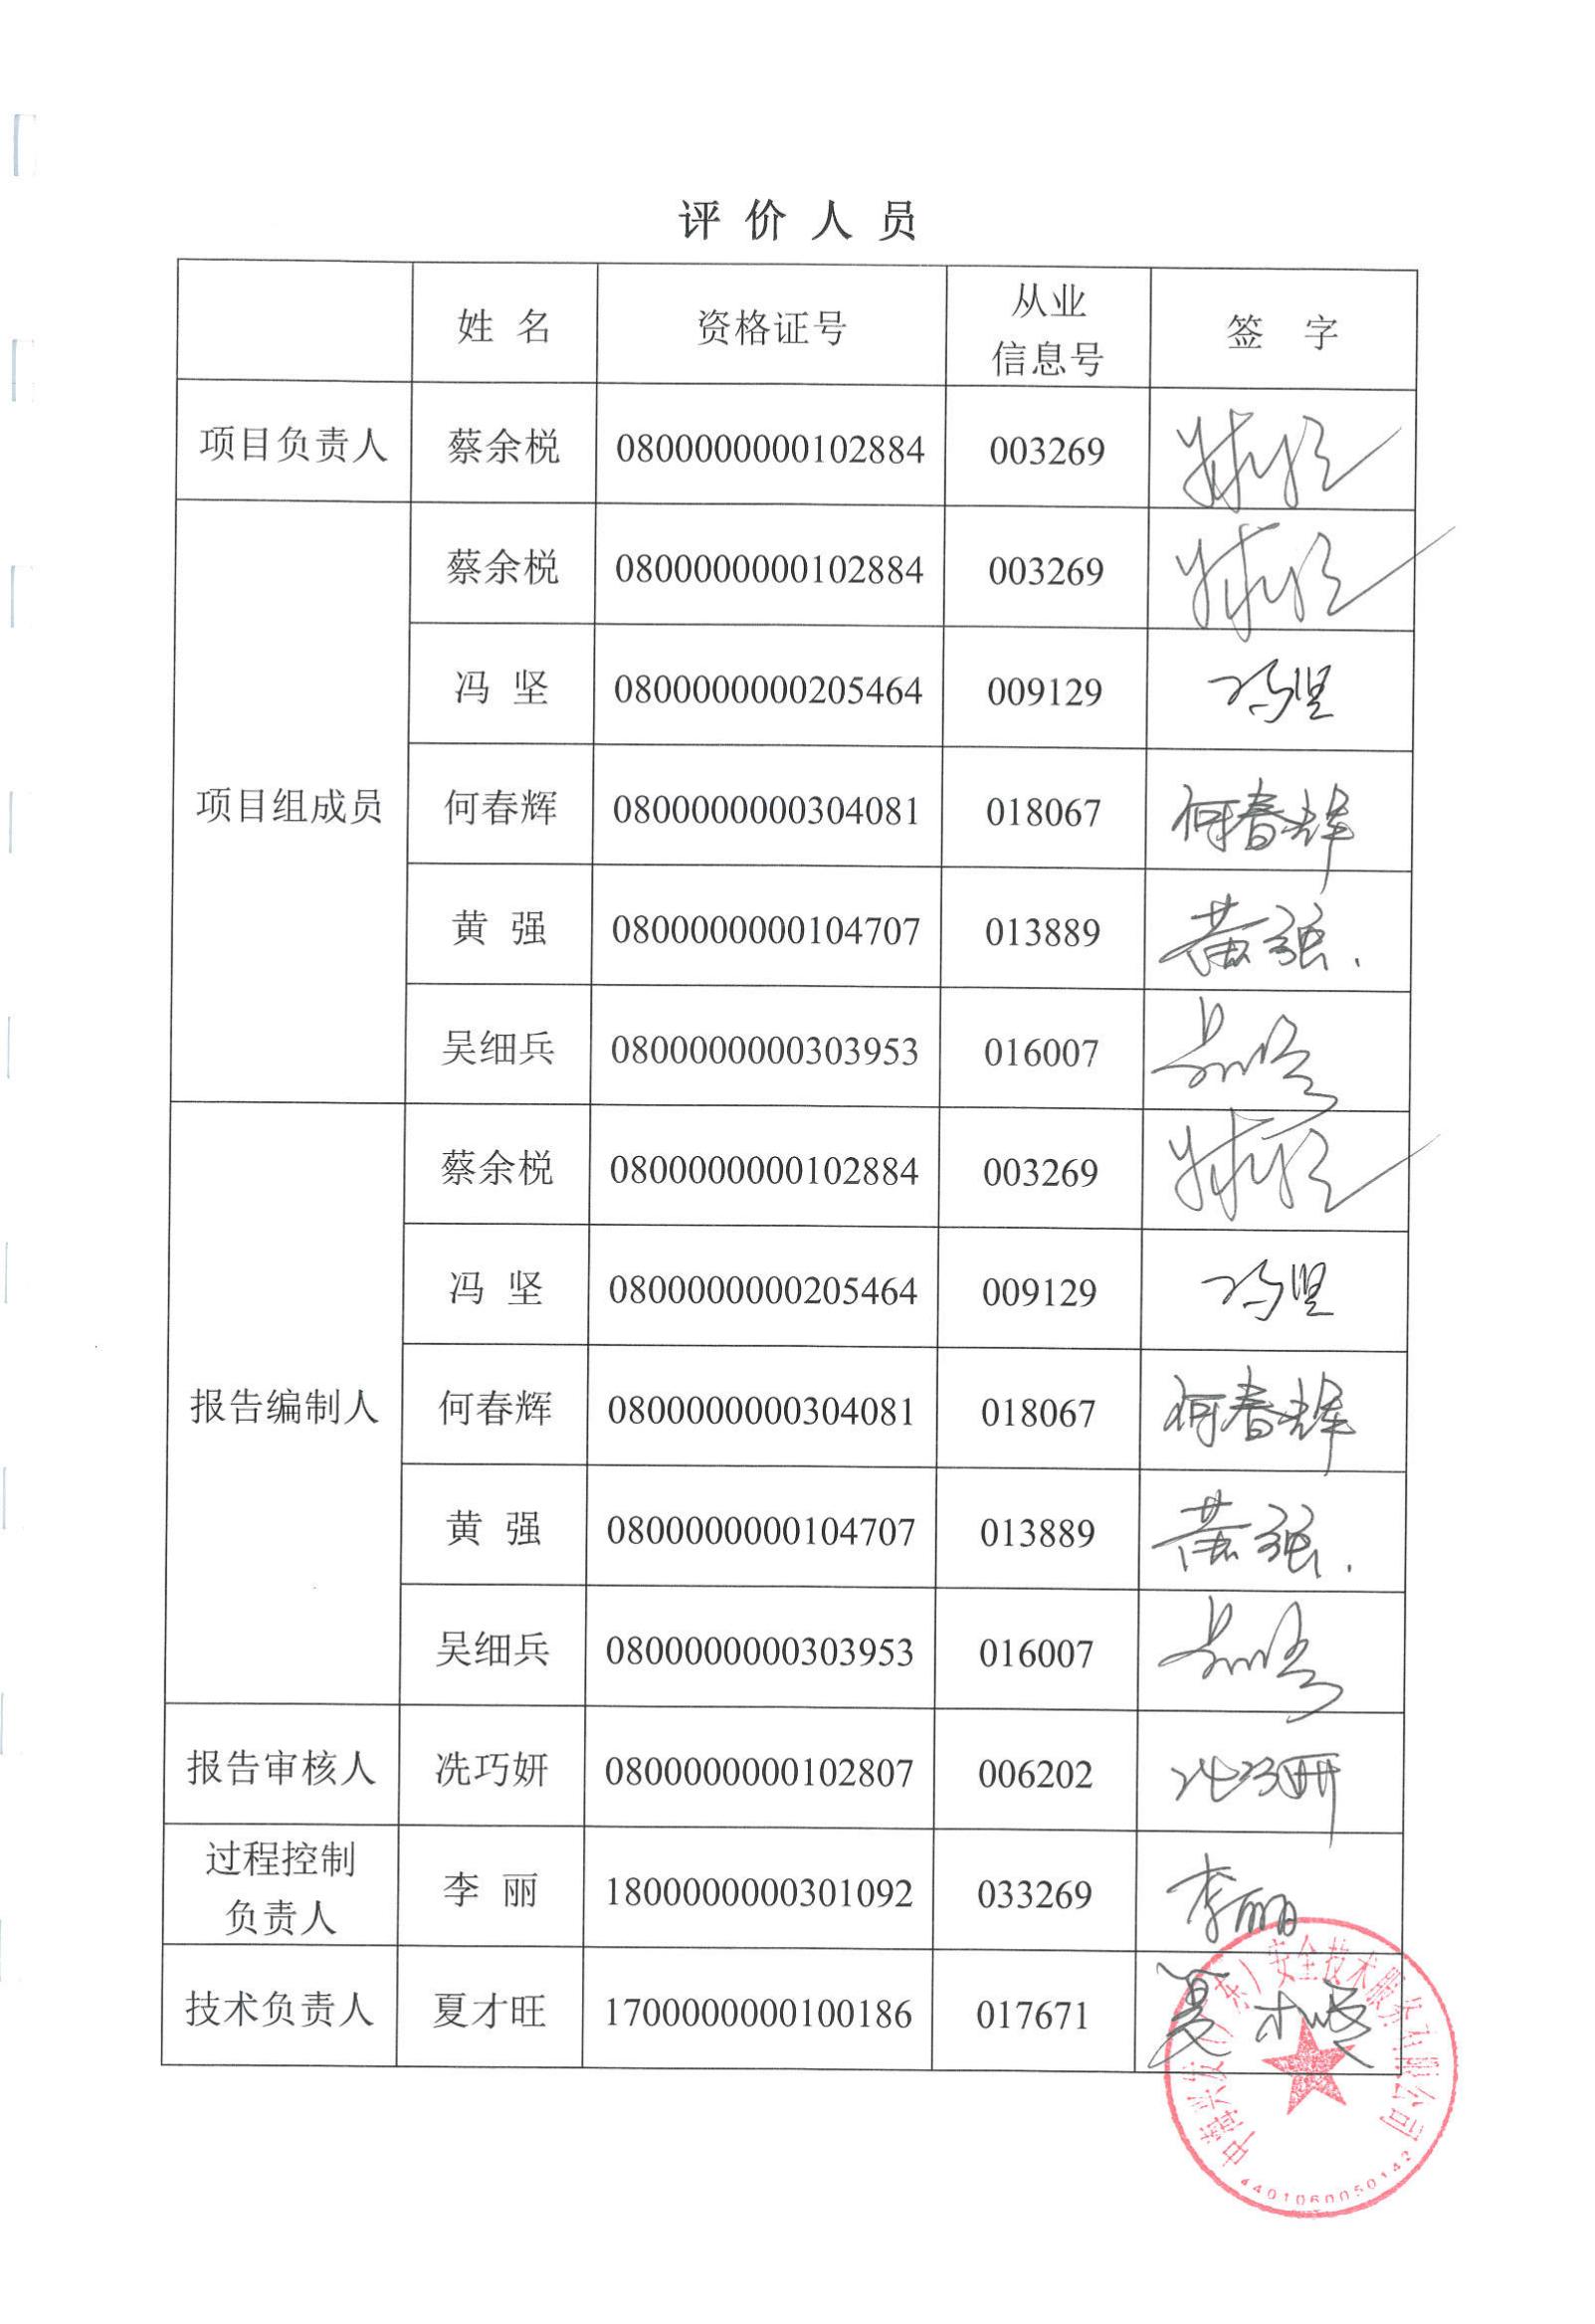 评价人员
姓名 资格证号 从业信息号 签字
项目负责人 蔡余棁 0800000000102884 003269
项目组成员 蔡余棁 0800000000102884 003269
冯坚 0800000000205464 009129 冯坚
何春辉 0800000000304081 018067 何春辉
黄强 0800000000104707 013889 黄强.
吴细兵 0800000000303953 016007
报告编制人 蔡余棁 0800000000102884 003269
冯坚 0800000000205464 009129 冯坚
何春辉 0800000000304081 018067 何春辉
黄强 0800000000104707 013889 黄强.
吴细兵 0800000000303953 016007
报告审核人 冼巧妍 0800000000102807 006202 冼巧妍
过程控制负责人 李丽 1800000000301092 033269 李丽
技术负责人 夏才旺 1700000000100186 017671 夏才旺
安全技术服务有限公司
4401060050142